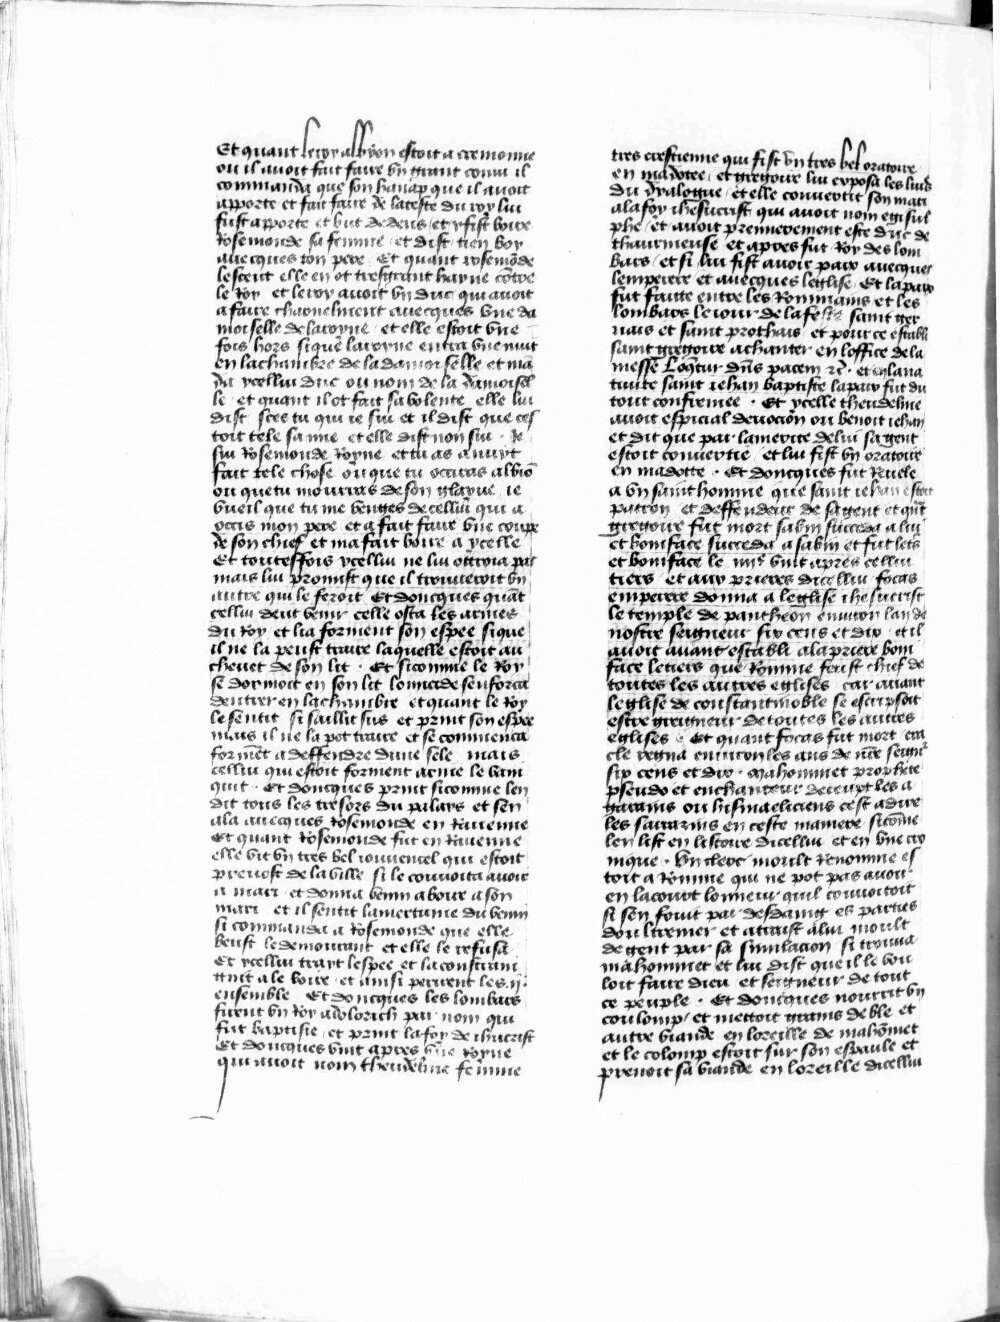 Et quant le roy albyon estoit a cremonne
ou il avoit fait faire vn grant conui il
commanda que son hanap que il auoit
apporte et fait faire de la teste du roy lui
fust apporte et but dedens et y fist boire
Rosemonde sa femme et dist tien boy
auecques ton pere Et quant rosemōde
le sceut elle en ot tresgrant hayne cōtre
le Roy et le roy auoit vn duc qui auoit
a faire charnelment auecques vne da
moiselle de la royne et elle estoit vne
fois hors si que la royne entra vne nuit
en la chambre de la damoiselle et mā
da ycellui duc ou nom de la damoisel
le et quant il ot fait sa volente elle lui
dist sces tu qui ie sui et il dist que ces
toit tele sa mie et elle dist non sui Ie
sui Rosemonde royne et tu as anuyt
fait tele chose ou que tu occiras albiō
ou que tu mourras de son glayue ie
vueil que tu me venges de cellui qui a
occis mon pere et a fait faire vne coupe
de son chief et ma fait boire a ycelle
Et toutesfois ycellui ne lui ottroia pas
mais lui promist que il trouueroit vn
autre qui le feroit Et doncques quāt
cellui deut venir celle osta les armes
du Roy et lia forment son espee si que
il ne la peust traire laquelle estoit au
cheuet de son lit Et si comme le Roy
se dormoit en son lit lomicide senforca
dentrer en la chambre et quant le Roy
le sentit si saillit sus et print son espee
mais il ne la pot traire et se commenca
formēt a deffendre dune sele mais
cellui qui estoit forment arme le vain
quit Et doncques print si comme len
dit tous les tresors du palays et sen
ala auecques Rosemonde en Rauenne
Et quant Rosemonde fut en Rauenne
elle vit vn tres bel iouuencel qui estoit
preuost de la ville si le couuoita auoir
a mari et donna venin a boire a son
mari et il sentit lamertume du venin
si commanda a Rosemonde que elle
beust le demourant et elle le refusa
Et ycellui trayt lespee et la constraint
a le boire et ainsi perirent les ij
ensemble Et doncques les lombars
firent vn Roy adolorich par nom qui
fut baptisie et print la foy de ihucrist
Et doncques vint apres vne royne
qui auoit nom theudeline femme
tres crestienne qui fist vn tres bel oratoire
en madotee et gregoire lui exposa les liures
du dyalogue et elle conuertit son mari
a la foy ihesucrist qui auoit nom egisul
phe et auoit premierement este duc de
thaurineuse et apres fut Roy des lom
bars et si lui fist auoir paix auecques
lemperere et auecques leglise Et la paix
fut faitte entre les Rommains et les
lombars le iour de la feste saint ger
uais et saint prothais et pour ce establi
saint gregoire a chanter en loffice de la
messe Loq̄tur dn̄s pacem et en la na
tiuite saint iehan baptiste la paix fut du
tout confirmee Et ycelle theudeline
auoit especial deuocion ou benoit iehan
et dit que par la merite de lui sa gent
estoit conuertie et lui fist vn oratoire
en madotte Et doncques fut Reuele
a vn saint homme que saint iehan estoit
patron et deffendeur de sa gent et quāt
gregoire fut mort sabin succeda a lui
et boniface succeda a sabin et fut le tiers
et boniface le iiiie vint apres cellui
tiers et aux prieres dicellui focas
emperere donna a leglise ihesucrist
le temple de pantheon enuiron lan de
nostre seigneur six cens et dix et il
auoit auant establi a la priere boni
face le tiers que Romme feust chief de
toutes les autres eglises car auant
leglise de constantinoble se escripsoit
estre greigneur de toutes les autres
eglises Et quant focas fut mort era
cle regna enuiron les ans de nr̄e seignr
six cens et dix Mahommet prophete
pseudo et enchanteur deceupt les a
garains ou hismaeliciens cest a dire
les sarrazins en ceste maniere si cōme
len list en listoire dicellui et en vne cro
nique Vn clerc moult Renomme es
toit a Romme qui ne pot pas auoir
en la court lonneur quil conuoitoit
si sen fouit par desdaing es parties
doultremer et attraist a lui moult
de gent par sa simulacion si trouua
mahommet et lui dist que il le vou
loit faire dieu et seigneur de tout
ce peuple Et doncques nourrit vn
coulomp et mettoit grains de ble et
autre viande en loreille de mahōmet
et le colomp estoit sur son espaule et
prenoit sa viande en loreille dicellui